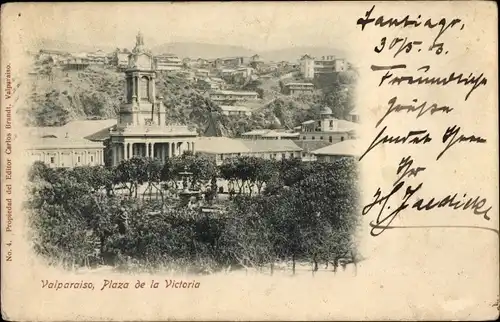 No. 4. Propiedad del Editor Carlos Brandt, Valparaiso.
Santiago,
30/5. 03.
Freundliche
Grüsse
sendet Ihnen
Ihr
Valparaiso, Plaza de la Victoria